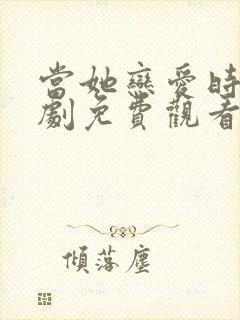 當她戀愛時
劇免費觀看
傾落塵